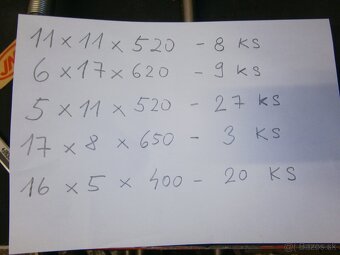 11 × 11 × 520 - 8 KS
6 × 17 × 620 - 9 KS
5 × 11 × 520 - 27 KS
17 × 8 × 650 - 3 KS
16 × 5 × 400 - 20 KS